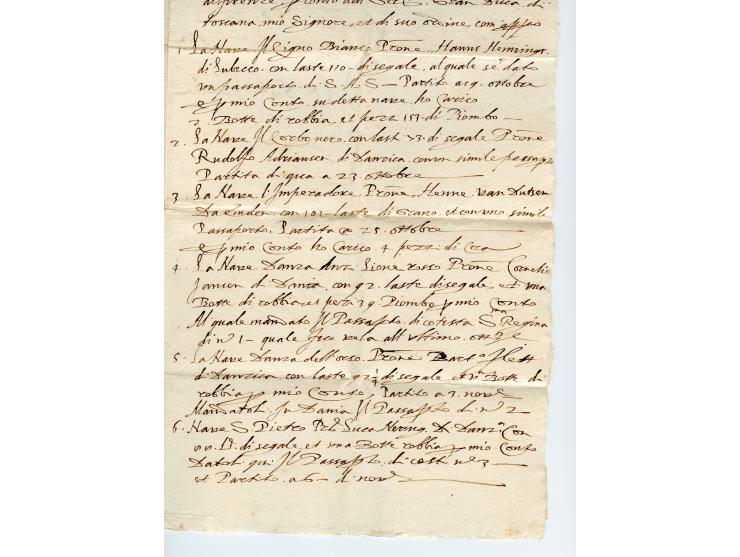 Toscana, mio Signore, et di suo ordine, com appo
1. La Nave Il Cigno Bianco Prone. Hanns Henningr
di Lubecco. con laste 110 - di segale, al quale se dato
un passaporto di S. A. S - Partito a 19 ottobre
e p mio Conto su detta nave ho Carico
2. Botte di robbia et pezzi 151 di Piombo -
2. La Nave Il Corbo nero, con last 73 di segale Prone
Rudolfo Adriansen di Danzica, con un simile passapto
Partita di qua a 23. ottobre
3. La Nave l'Imperadore Prone, Henne van
con 101 laste di Grano, et con uno simile
Passaporto, Partita a 25. ottobre
e p mio Conto ho Carico 4 pezzi di Cera
4. La Nave Danza Lione rosso Prone Cornelio
Jansen d Danza, con 92 laste di segale, et una
Botte di robbia, et pezzi 39 Piombo p mio Conto
Al quale mandato Il Passapto di cotesta Sma Regina
di no 1 - quale fece vela all ultimo ottre
5. La Nave Danza dell'orso Prone
di Danzica con laste 92 1/4 di segale et 1a Botte di
robbia p mio Conto, Partito a 3. nove
Mandatoli In Dania Il Passapto di no 2
6. Nave S. Pietro Luca Hering Di Danza Con
55 di segale, et una Botte robbia p mio Conto
Datoli qui Il Passapto di no 3 -
et Partito a 6 - di nove